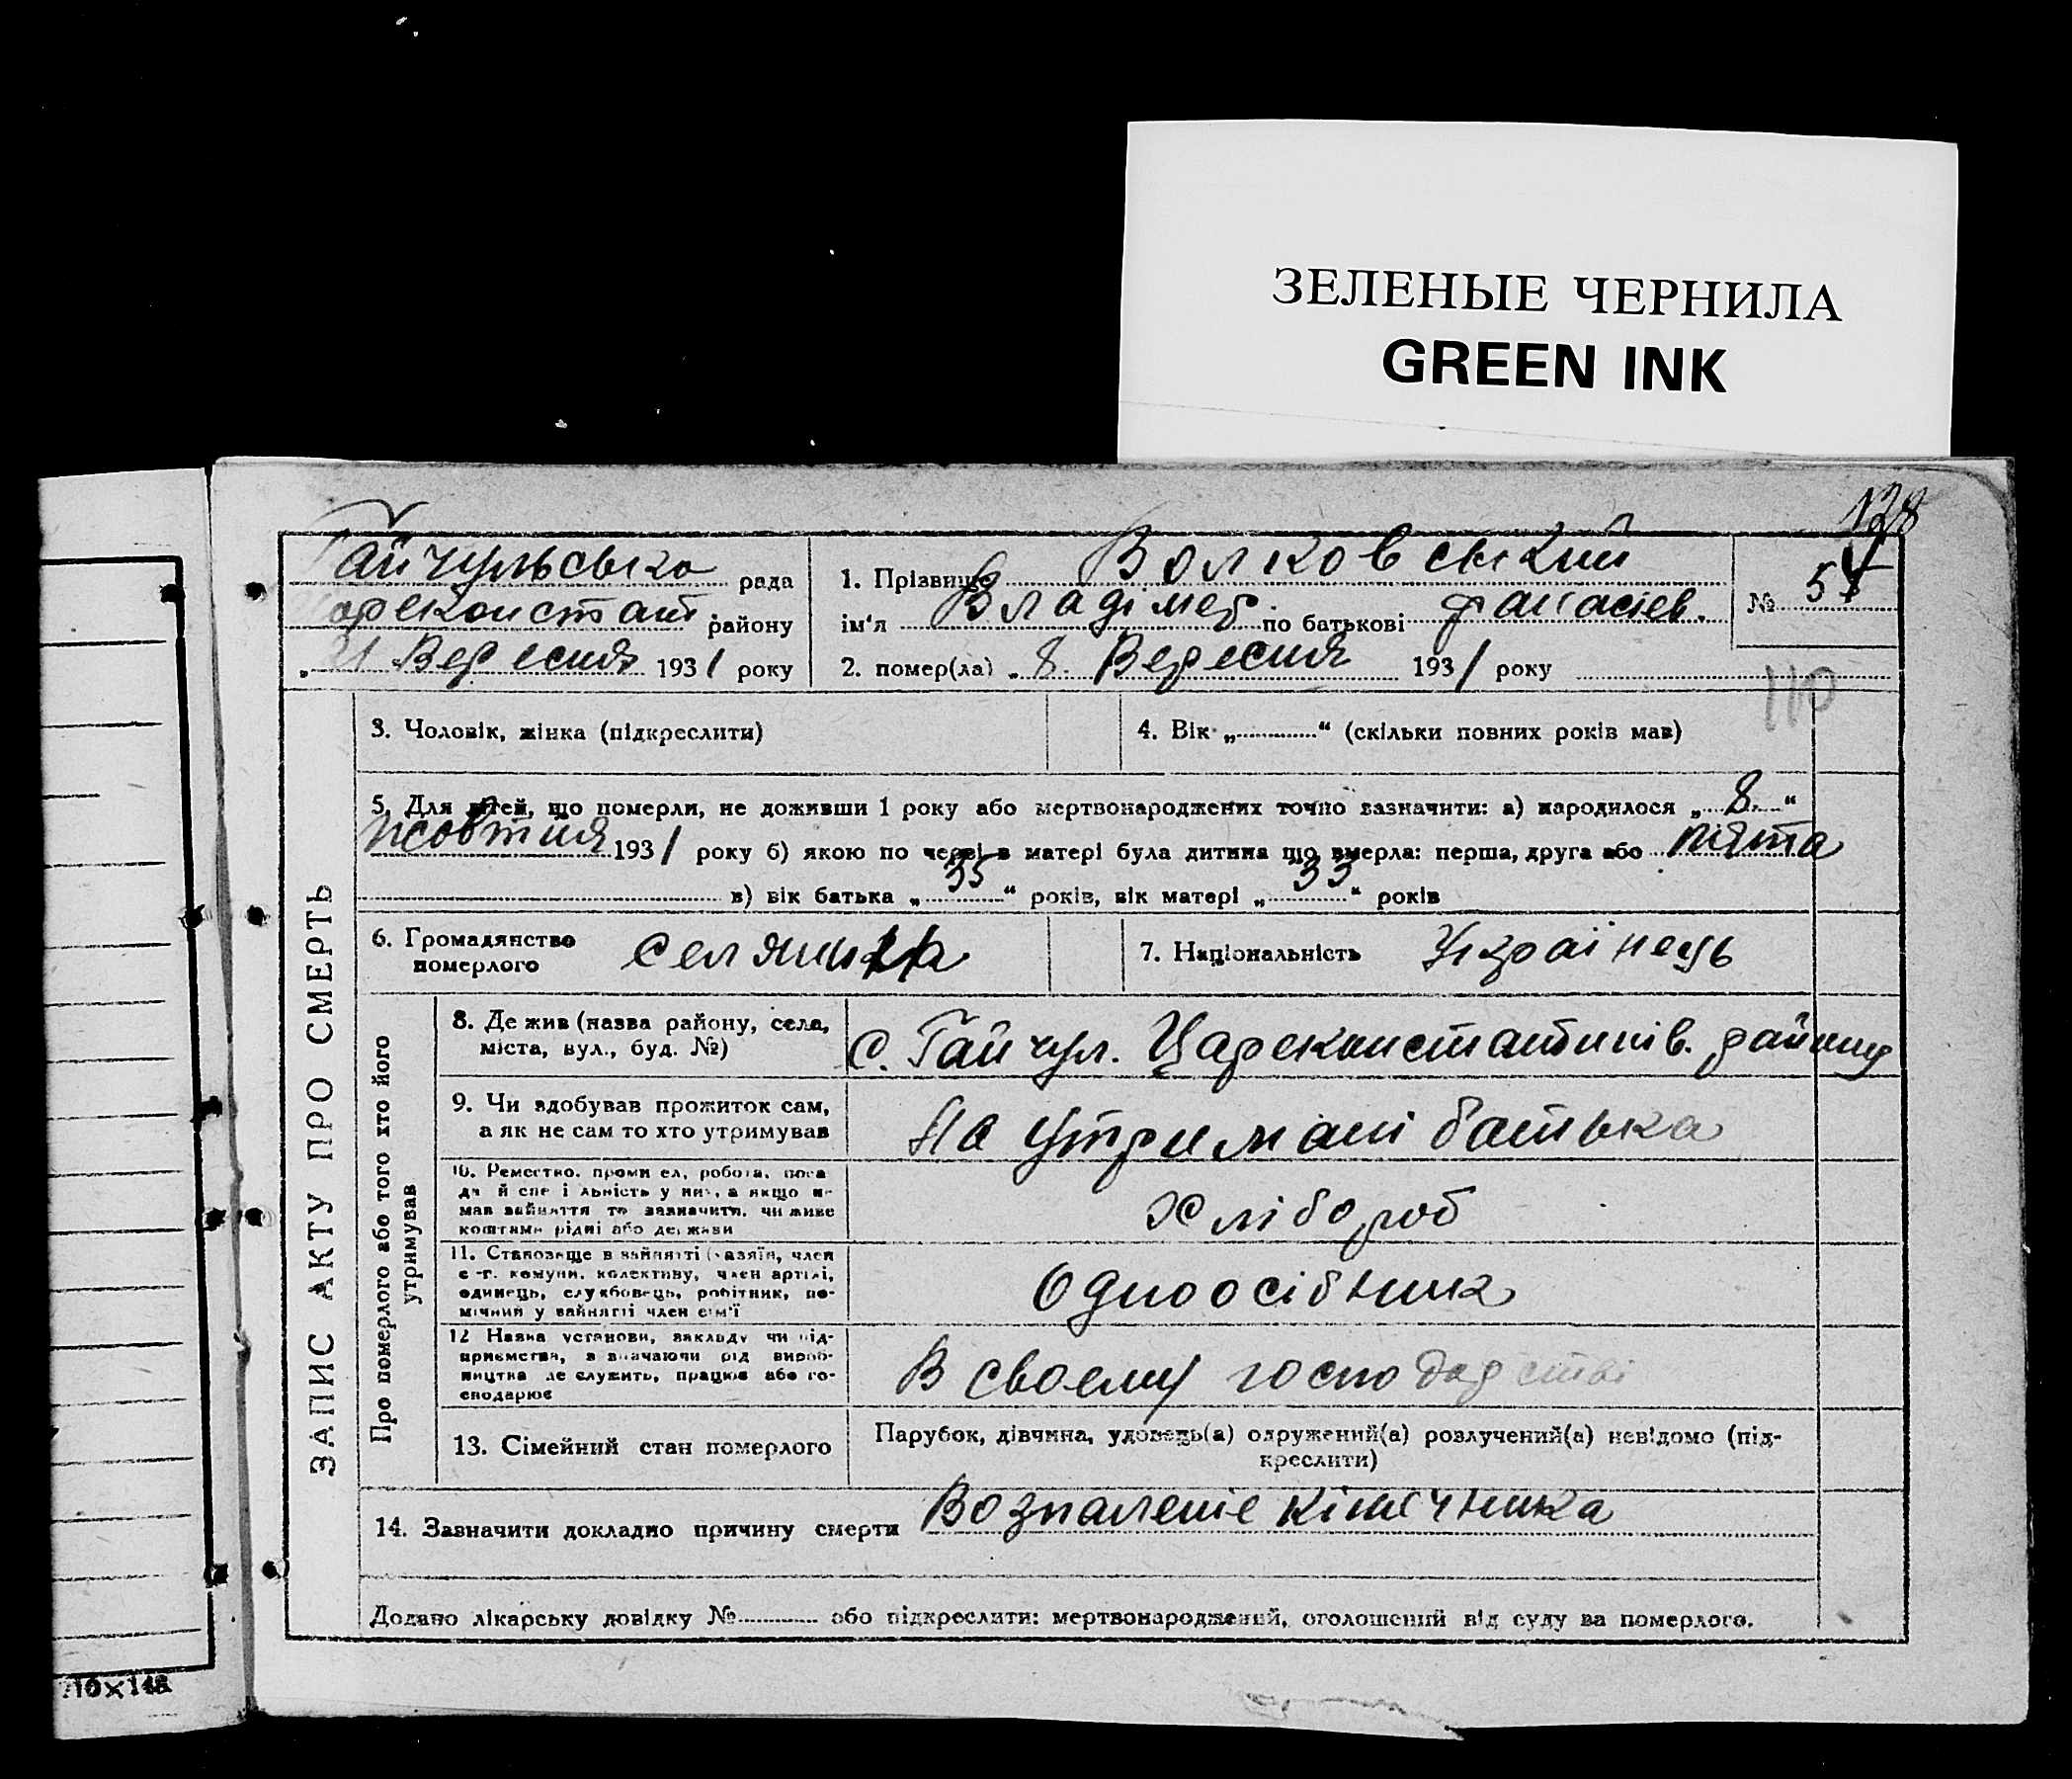 ЗЕЛЕНЫЕ ЧЕРНИЛА
GREEN INK
128
Гайчульська рада
Цареконстант. району
„21 Вересня 1931 року
1. Прізвище Волковський
ім'я Владімер по батькові Фанасіев.
2. помер(ла) „8. Вересня 1931 року
№ 54
110
3. Чоловік, жінка (підкреслити)
4. Вік „............“ (скільки повних років мав)
5. Для дітей, що померли, не доживши 1 року або мертвонароджених точно зазначити: а) народилося „8.“
жовтня 1931 року б) якою по черзі в матері була дитина що вмерла: перша, друга або пята
в) вік батька „35“ років, вік матері „33“ років
6. Громадянство
померлого
селянина
7. Національність Українець
ЗАПИС АКТУ ПРО СМЕРТЬ
Про померлого або того хто його
утримував
8. Де жив (назва району, села,
міста, вул., буд. №)
с. Гайчул. Цареконстантинів. району
9. Чи здобував прожиток сам,
а як не сам то хто утримував
На утримані батька
10. Ремество, промисел, робота, поса
да й спеціальність у них, а якщо не
мав зайняття то зазначити, чи живе
коштами рідні або держави
Хлібороб
11. Становище в зайнятті (хазяїн, член
с.-г. комуни, колективу, член артілі,
одинець, службовець, робітник, по-
мічний у зайнятті член сім'ї
Одноосібник
12 Назва установи, закладу чи під-
приємства, зазначаючи рід вироб-
ництва де служить, працює або го-
сподарює
В своему господарстві
13. Сімейний стан померлого
Парубок, дівчина, удовець(а) одружений(а) розлучений(а) невідомо (під-
креслити)
14. Зазначити докладно причину смерти Возпаленіе кішечника
Додано лікарську довідку №............ або підкреслити: мертвонароджений, оголошений від суду за померлого.
210×148